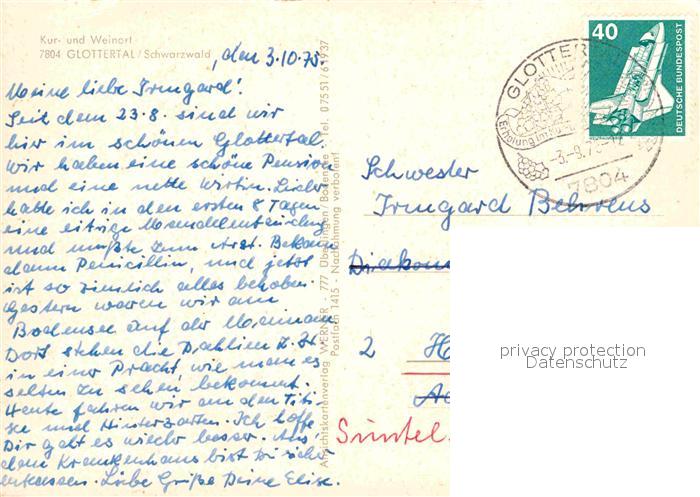 Kur- und Weinort
7804 GLOTTERTAL/Schwarzwald
, den 3.10.75.
Meine liebe Irmgard!
Seit dem 23.8. sind wir
hier im schönen Glottertal.
Wir haben eine schöne Pension
und eine nette Wirtin. Leider
hatte ich in den ersten 8 Tagen
eine eitrige Mandelentzündg
und mußte zum Arzt. Bekam
dann Penicillin, und jetzt
ist so ziemlich alles behoben.
Gestern waren wir am
Bodensee auf der Mainau
Dort stehen die Dahlien z. Zt
in einer Pracht, wie man es
selten zu sehen bekommt.
Heute fahren wir an den Titi-
see und Hinterzarten. Ich hoffe
Dir geht es wieder besser. Aus
dem Krankenhaus bist Du sicher
entlassen. Liebe Grüße Deine Elise.
Ansichtskartenverlag WERNER · 777 Überlingen/Bodensee · Tel. 07551/61937
Postfach 1415 · Nachahmung verboten!
GLOTTER
Erholung im
-3.-9.7
7804
40
DEUTSCHE BUNDESPOST
Schwester
Irmgard Behrens
Diakon
2 H
Süntel.
privacy protection
Datenschutz